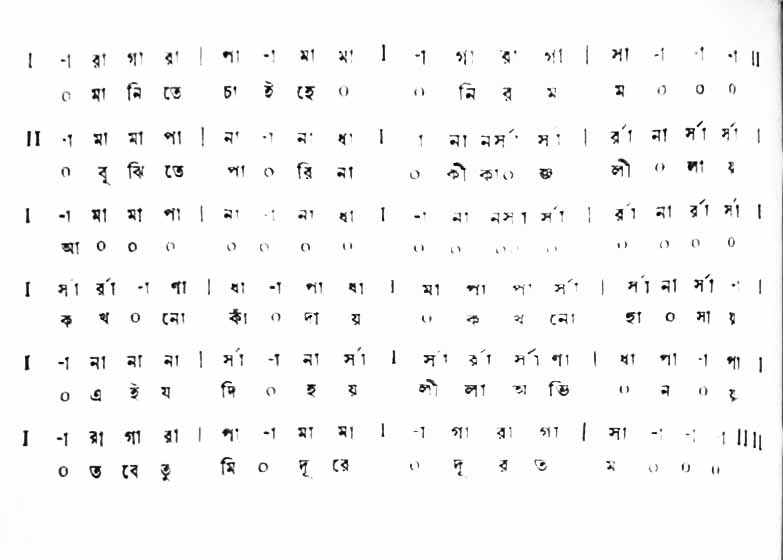 I -া রা গা রা | পা -া মা মা I -া গা রা গা | সা -া -া -া II
০ মা নি তে চা ই হে ০ ০ নি র ম ম ০ ০ ০
II -া মা মা পা | না -া না ধা I া না নর্সা র্সা | র্রা না র্সা র্সা |
০ বু ঝি তে পা ০ রি না ০ কী কা০ জ লী ০ লা য়
I -া মা মা পা | না -া না ধা I -া না নসা র্সা | র্রা না র্রা র্সা |
আ ০ ০ ০ ০ ০ ০ ০ ০ ০ ০০ ০ ০ ০ ০ ০
I র্সা র্রা -া ণা | ধা -া পা ধা I মা পা পা র্সা | র্সা না র্সা -া |
ক খ ০ নো কাঁ ০ দা য় ০ ক খ নো হা ০ সা য়
I -া না না না | র্সা -া না র্সা I র্সা র্রা র্সা ণা | ধা পা -া পা |
০ এ ই য দি ০ হ য় লী লা অ ভি ০ ন ০ য়
I -া রা গা রা | পা -া মা মা I -া গা রা গা | সা -া -া -া II II
০ ত বে তু মি ০ দূ রে ০ দূ র ত ম ০ ০ ০